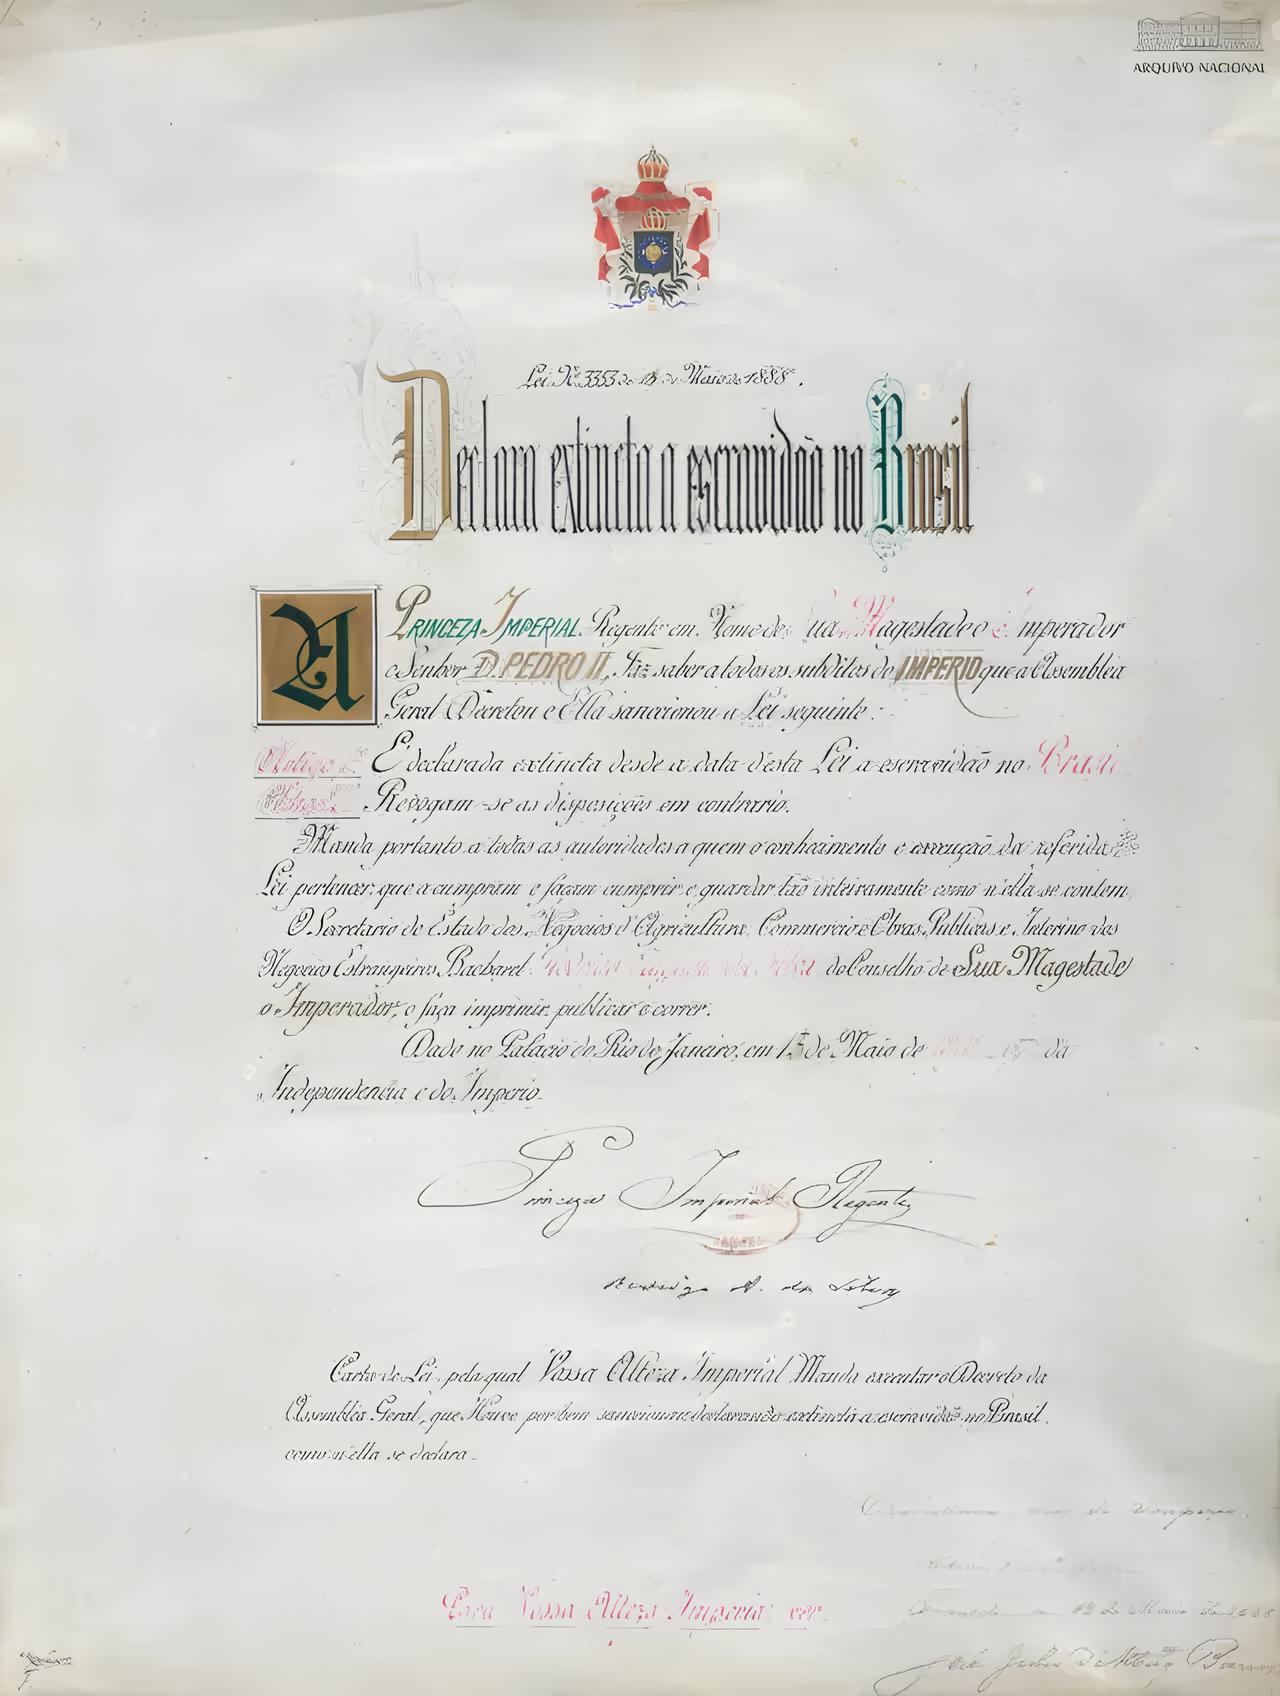 ARQUIVO NACIONAL
Lei Nº 3353 de 13 de Maio de 1888.
Declara extincta a escravidão no Brasil
A PRINCEZA IMPERIAL Regente em Nome de Sua Magestade o Imperador
o Senhor D. PEDRO II, Faz saber a todos os subditos do IMPERIO que a Assembléa
Geral Decretou e Ella sanccionou a Lei seguinte:
Artigo É declarada extincta desde a data d'esta Lei a escravidão no Brasil
Revogam-se as disposições em contrario.
Manda portanto a todas as autoridades a quem o conhecimento e execução da referida
Lei pertencer, que a cumpram e façam cumprir e guardar tão inteiramente como n'ella se contem.
O Secretario de Estado dos Negocios d'Agricultura, Commercio e Obras Publicas e Interino dos
Negocios Estrangeiros Bacharel do Conselho de Sua Magestade
o Imperador, o faça imprimir, publicar e correr.
Dado no Palacio do Rio de Janeiro, em 13 de Maio de da
Independencia e do Imperio.
Princeza Imperial Regente
Rodrigo A. da Silva
Carta de Lei, pela qual Vossa Alteza Imperial Manda executar o Decreto da
Assembléa Geral, que Houve por bem sanccionar declarando extincta a escravidão no Brasil,
como n'ella se declara.
Para Vossa Alteza Imperial ver